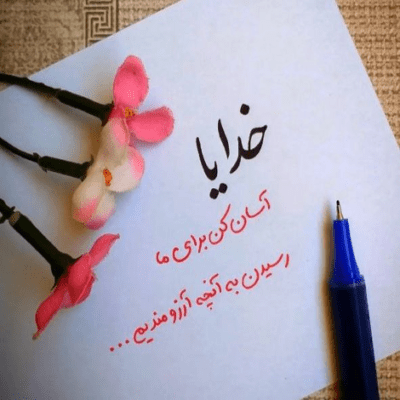 خدایا
آسان کن برای ما
رسیدن به آنچه آرزومندیم...